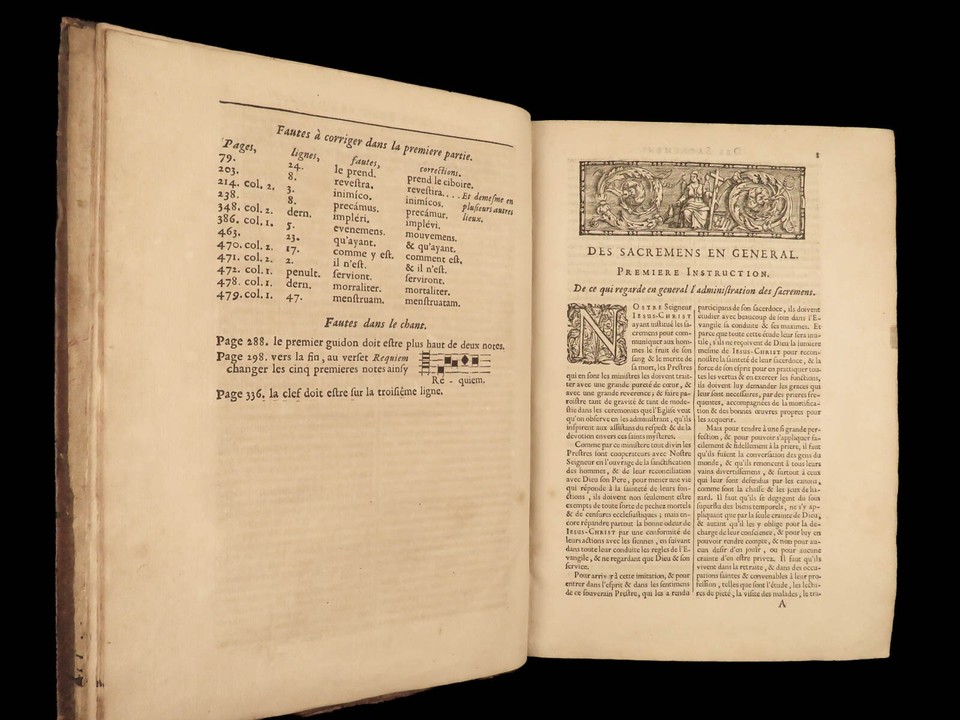 Fautes à corriger dans la premiere partie.
Pages, lignes, fautes, corrections.
79. 24. le prend. prend le ciboire.
203. 8. revestra. revestira.... Et demesme en
214. col. 2. 3. inimico. inimicos. plusieurs autres
238. 8. precámus. precámur. lieux.
348. col. 2. dern. impléri. implévi.
386. col. 1. 5. evenemens. mouvemens.
463. 23. qu'ayant. & qu'ayant.
470. col. 2. 17. comme y est. comment est.
471. col. 2. 2. il n'est. & il n'est.
472. col. 1. penult. serviont. serviront.
478. col. 1. dern. morraliter. mortaliter.
479. col. 1. 47. menstruam. menstruatam.
Fautes dans le chant.
Page 288. le premier guidon doit estre plus haut de deux notes.
Page 298. vers la fin, au verset Requiem
changer les cinq premieres notes ainsy
Re - quiem.
Page 336. la clef doit estre sur la troisiéme ligne.
1
DES SACREMENS EN GENERAL.
PREMIERE INSTRUCTION.
De ce qui regarde en general l'administration des sacremens.
NOSTRE Seigneur
IESUS-CHRIST
ayant institué les sa-
cremens pour com-
muniquer aux hom-
mes le fruit de son
sang & le merite de
sa mort, les Prestres
qui en sont les ministres les doivent trait-
ter avec une grande pureté de cœur, &
avec une grande reverence; & faire pa-
roistre tant de gravité & tant de mode-
stie dans les ceremonies que l'Eglise veut
qu'on observe en les administrant, qu'ils
inspirent aux assistans du respect & de la
devotion envers ces saints mysteres.
Comme par ce ministere tout divin les
Prestres sont cooperateurs avec Nostre
Seigneur en l'ouvrage de la sanctification
des hommes, & de leur reconciliation
avec Dieu son Pere, pour mener une vie
qui réponde à la sainteté de leurs fon-
ctions, ils doivent non seulement estre
exempts de toute sorte de pechez mortels
& de censures ecclesiastiques; mais en-
core répandre partout la bonne odeur de
IESUS-CHRIST par une conformité de
leurs actions avec les siennes, en suivant
dans toute leur conduite les regles de l'E-
vangile, & ne regardant que Dieu & son
service.
Pour arriver à cette imitation, & pour
entrer dans l'esprit & dans les sentimens
de ce souverain Prestre, qui les a rendu
participans de son sacerdoce, ils doivent
étudier avec beaucoup de soin dans l'E-
vangile sa conduite & ses maximes. Et
parce que toute cette étude leur sera inu-
tile, s'ils ne reçoivent de Dieu la lumiere
mesme de IESUS-CHRIST pour recon-
noistre la sainteté de leur sacerdoce, & la
force de son esprit pour en prattiquer tou-
tes les vertus & en exercer les fonctions,
ils doivent luy demander les graces qui
leur sont necessaires, par des prieres fre-
quentes, accompagnées de la mortifica-
tion & des bonnes œuvres propres pour
les acquerir.
Mais pour tendre à une si grande per-
fection, & pour pouvoir s'appliquer fa-
cilement & fidellement à la priere, il faut
qu'ils fuient la conversation des gens du
monde, & qu'ils renoncent à tous leurs
vains divertissemens, & surtout à ceux
qui leur sont defendus par les canons,
comme sont la chasse & les jeux de ha-
zard. Il faut qu'ils se degagent du soin
superflu des biens temporels, ne s'y ap-
pliquant que par la seule crainte de Dieu,
& autant qu'il les y oblige pour la de-
charge de leur conscience, & pour luy en
pouvoir rendre compte, & non pour au-
cun desir d'en jouir, ou pour aucune
crainte d'en estre privez. Il faut qu'ils
vivent dans la retraite, & dans des occu-
pations saintes & convenables à leur pro-
fession, telles que sont l'étude, les lectu-
res de pieté, la visite des malades, le tra-
A